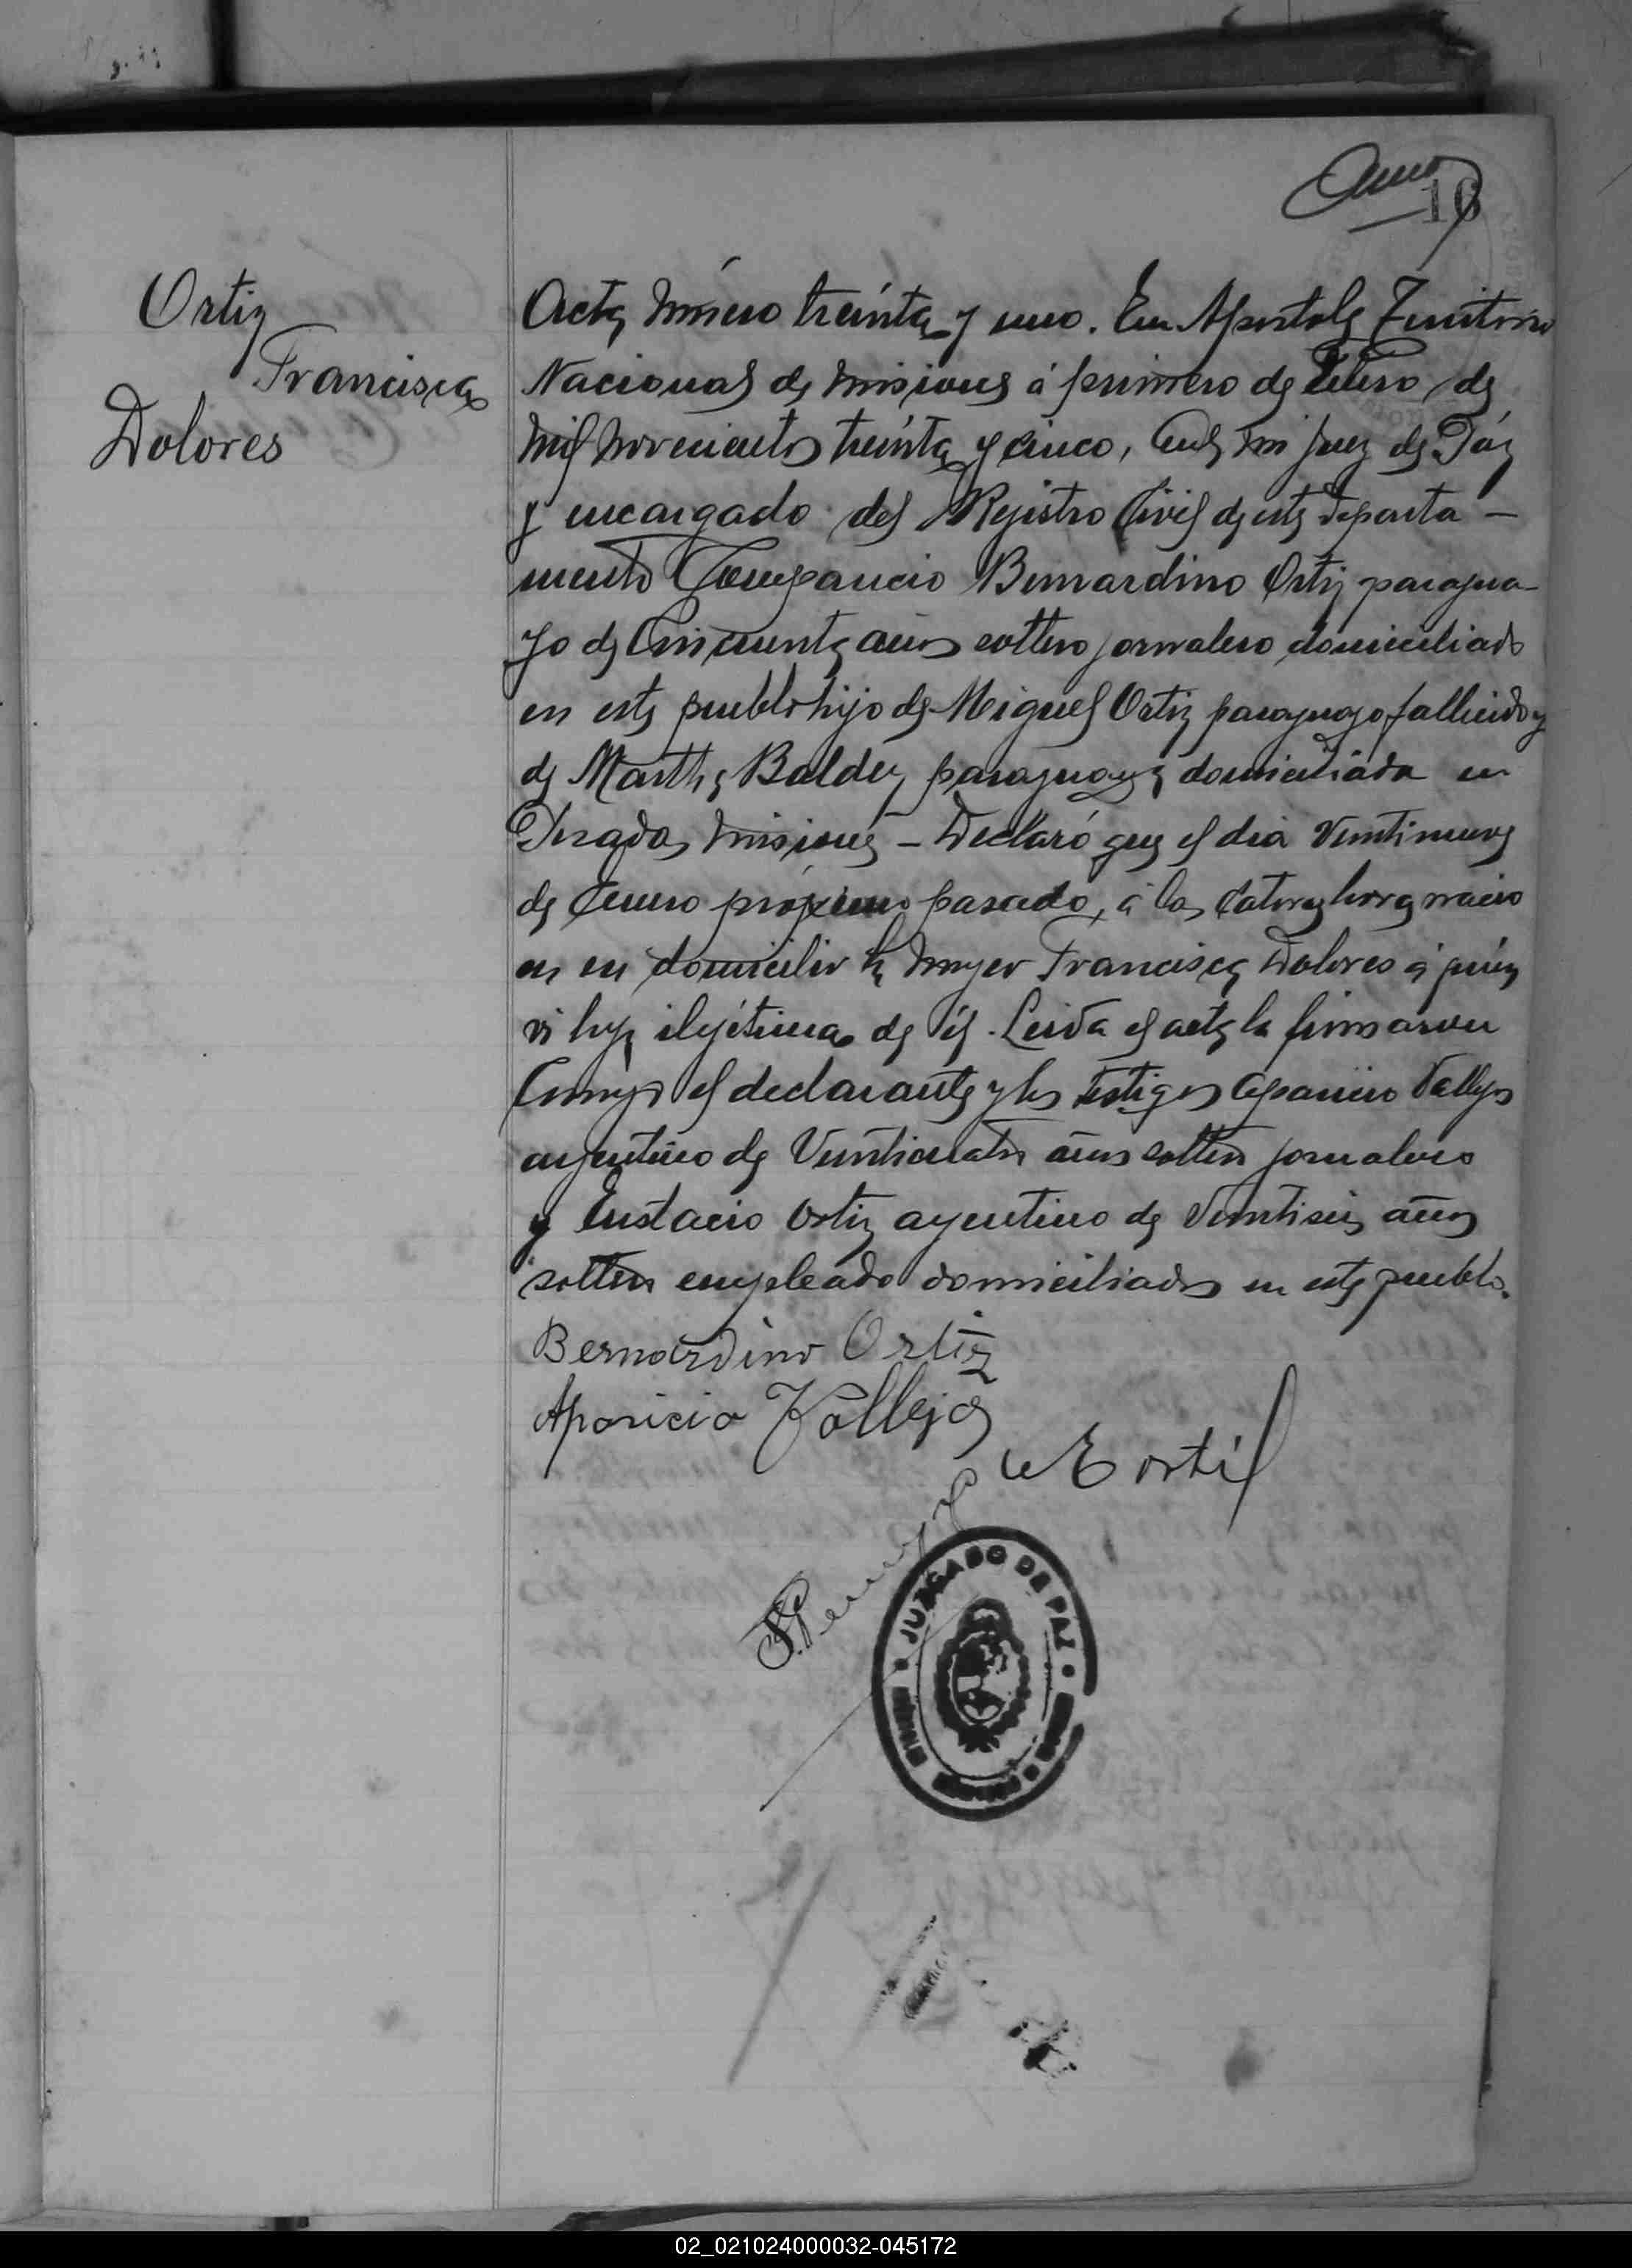 16
Ortiz
Francisca
Dolores
Acta número treinta y uno. En Apostoles Territorio
Nacional de Misiones á primero de Febrero de
mil novecientos treinta y cinco, Ante mi Juez de Páz
y encargado del Registro Civil de este Departa-
mento Compareció Bernardino Ortiz paragua-
yo de Cincuenta años soltero jornalero domiciliado
en este pueblo hijo de Miguel Ortiz paraguayo fallecido y
de Martha Baldez paraguaya domiciliada en
Posadas Misiones - Declaró que el dia Veintinueve
de Enero próximo pasado, á las Catorce horas nació
en su domicilio la mujer Francisca Dolores á quien
vi hija ilejitima de él. Leida el acta la firmaron
Conmigo el declarante y los testigos Aparicio Vallejos
argentino de Veinticuatro años soltero jornalero
y Eustacio Ortiz argentino de Veintiseis años
soltero empleado domiciliados en este pueblo.
Bernardino Ortiz
Aparicio Vallejos
E Ortiz
JUZGADO DE PAZ
02_021024000032-045172